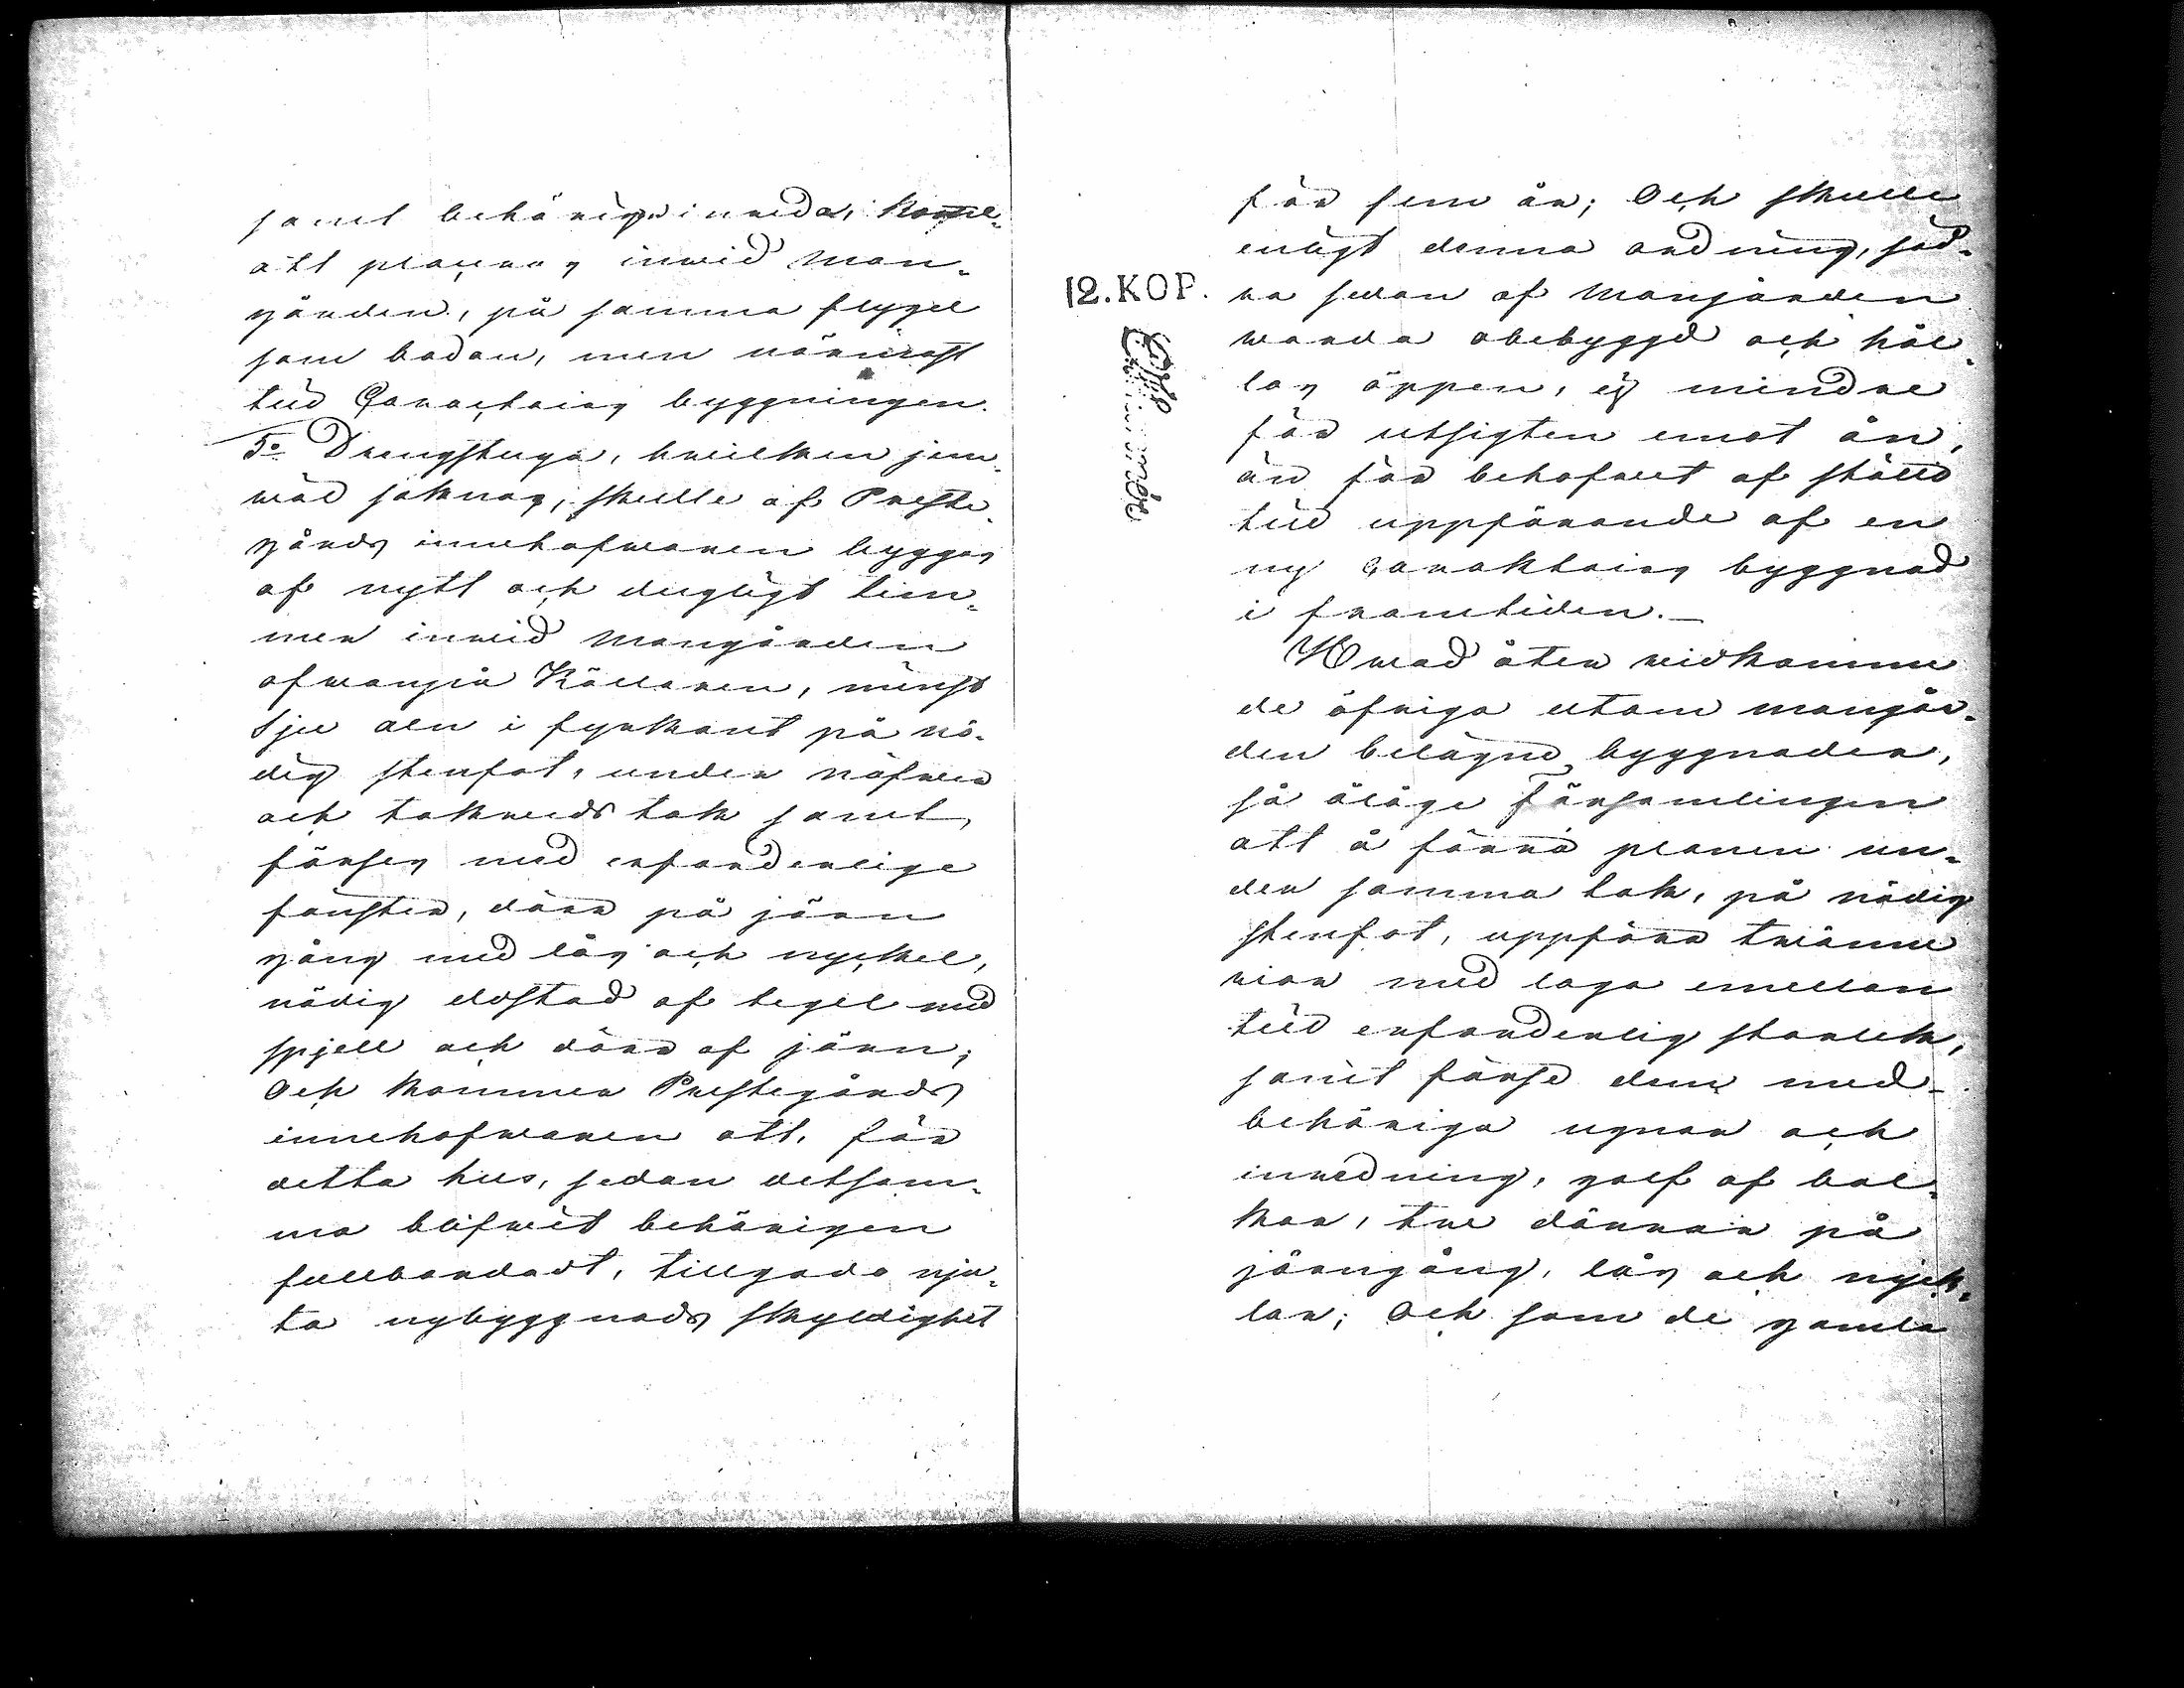 samt behörigen inreda,
att placeras inwid Man=
gården, på samma flygel
som bodan, men närmast
till Caractairs byggningen.
5o Drengstuga, hwilken jem=
wäl saknas, skulle af Preste=
gårds innehafwaren byggas
af nytt och dugligt tim=
mer inwid Mangården
ofwanpå Källaren, minst
Sju aln i fyrkant på nö=
dig stenfot, under näfwer
och takweds tak samt
förses med erforderlige
fönster, dörr på järn
gång med lås och nyckel,
nödig eldstad af tegel med
spjell och dörr af järn;
Och kommer Prestegårds
innehafwaren att, för
detta hus, sedan detsam=
ma blifwit behörigen
fullbordadt, tillgodo nju=
ta nybyggnads skyldighet
för fem år; Och skulle
enligt denna ordning, söd=
12. KOP. ra sedan af Mangården
warda obebyggd och hål=
las öppen, ej mindre
för utsigten emot ån,
än för behofwet af ställe
till uppförande af en
ny Caraktairs byggnad
i framtiden.
Hwad åter widkomme
de öfriga utom mangår=
den belägne byggnader,
så ålåge Församlingen
att å förra planen un=
der samma tak, på nödig
stenfot, uppföra twänne
rior med loga emellan
till erforderlig storlek,
samt förse dem med
behöriga ugnar och
inredning, golf af bal=
kar, tre dörrar på
järngång, lås och nyck=
lar; Och som de gamla